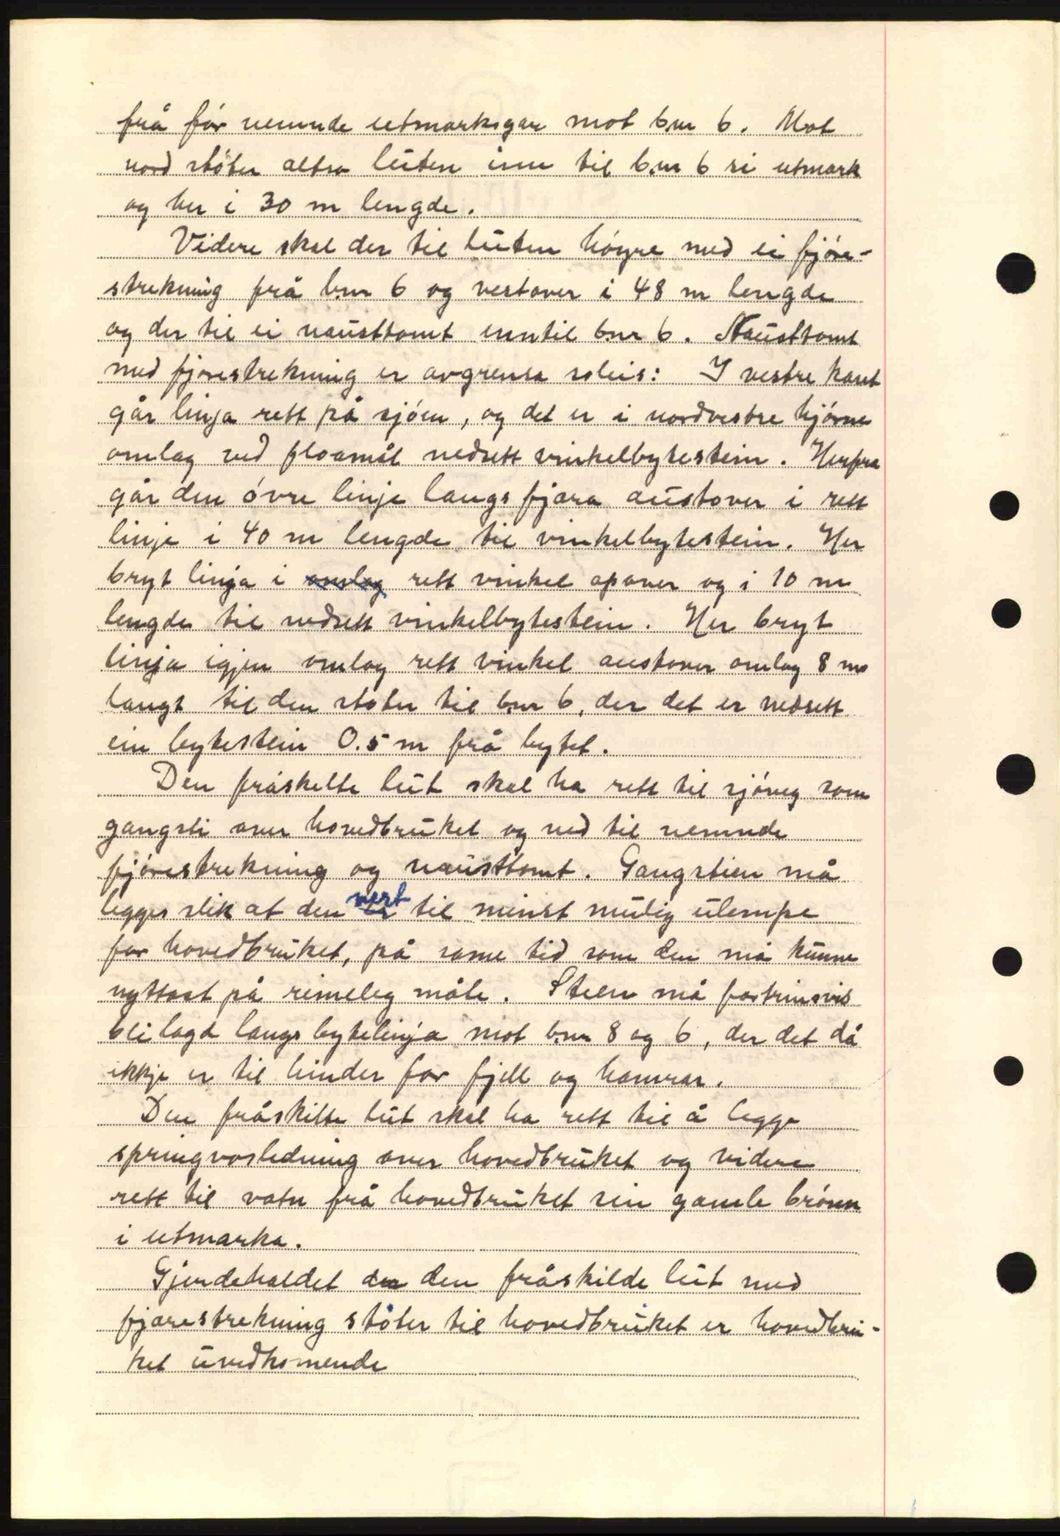 frå før nemnde utmarksgar mot b.nr 6. Mot
nord støter altso luten inn til b.nr 6 si utmark
og her i 30 m lengde.
Videre skal der til luten høyre med ei fjøre-
strekning frå b.nr 6 og vestover i 48 m lengde
og der til ei nausttomt inntil b.nr 6. Nausttomt
med fjørestrekning er avgrensa soleis: I vestre kant
går linja rett på sjøen, og det er i nordvestre hjørne
omlag ved floamål nedsett vinkelbytestein. Herfra
går den øvre linje langs fjæra austover i rett
linje i 40 m lengde til vinkelbytestein. Her
bryt linja i omlag rett vinkel opover og i 10 m
lengde til nedsett vinkelbytestein. Her bryt
linja igjen omlag rett vinkel austover omlag 8 m
langt til den støter til b.nr 6, der det er nedsett
ein bytestein 0.5 m frå bytet.
Den fråskelte lut skal ha rett til sjøveg som
gangsti over hovedbruket og ned til nemnde
fjørestrekning og nausttomt. Gangstien må
legges slik at den vert til minst mulig ulempe
for hovedbruket, på same tid som den må kunne
nyttast på rimeleg måte. Stien må fortrinsvis
bli lagd langs bytelinja mot b.nr 8 og 6, der det då
ikkje er til hinder for fjell og hamrar.
Den fråskilte lut skal ha rett til å legge
springvasledning over hovedbruket og videre
rett til vatn frå hovedbruket sin gamle brønn
i utmarka.
Gjerdehaldet der den fråskilde lut med
fjærestrekning støter til hovedbruket er hovedbru-
ket uvedkomende